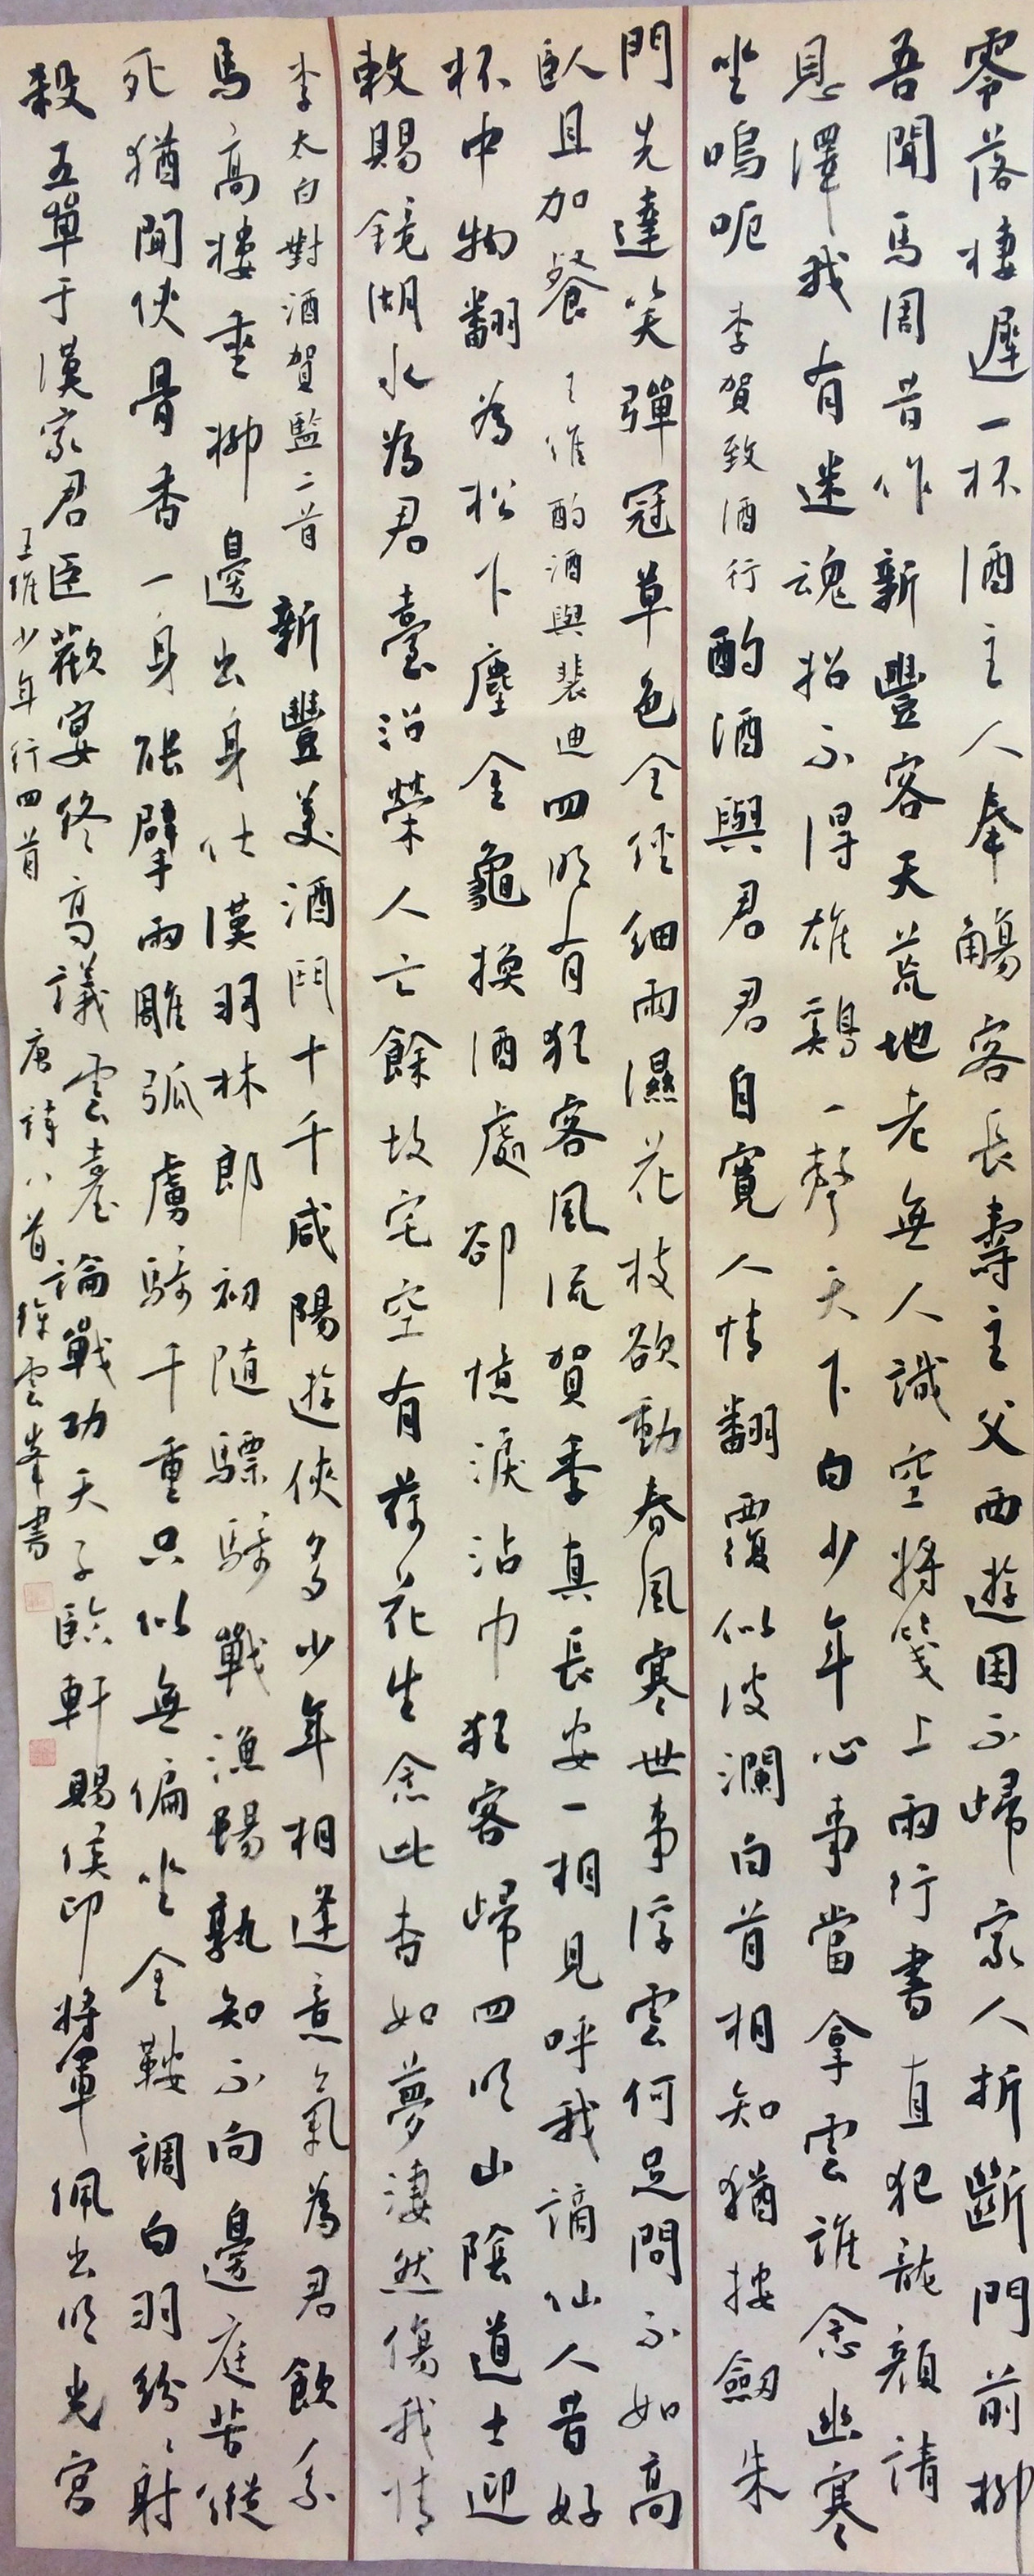 零落棲遲一杯酒主人奉觴客長壽主父西遊困不歸家人折斷門前柳
吾聞馬周昔作新豐客天荒地老無人識空將箋上兩行書直犯龍顏請
恩澤我有迷魂招不得雄雞一聲天下白少年心事當拿雲誰念幽寒
坐嗚呃 李賀致酒行 酌酒與君君自寬人情翻覆似波瀾白首相知猶按劍朱
門先達笑彈冠草色全經細雨濕花枝欲動春風寒世事浮雲何足問不如高
臥且加餐 王維酌酒與裴迪 四明有狂客風流賀季真長安一相見呼我謫仙人昔好
杯中物翻為松下塵金龜換酒處卻憶淚沾巾狂客歸四明山陰道士迎
敕賜鏡湖水為君臺沼榮人亡餘故宅空有荷花生念此杳如夢淒然傷我情
李太白對酒賀監二首 新豐美酒鬥十千咸陽遊俠多少年相逢意氣為君飲系
馬高樓垂柳邊出身仕漢羽林郎初隨驃騎戰漁陽孰知不向邊庭苦縱
死猶聞俠骨香一身能擘兩雕弧虜騎千重只似無偏坐金鞍調白羽紛〻射
殺五單于漢家君臣歡宴終高議雲臺論戰功天子臨軒賜侯印將軍佩出明光宮
王維少年行四首 唐詩八首 徐雲峯書